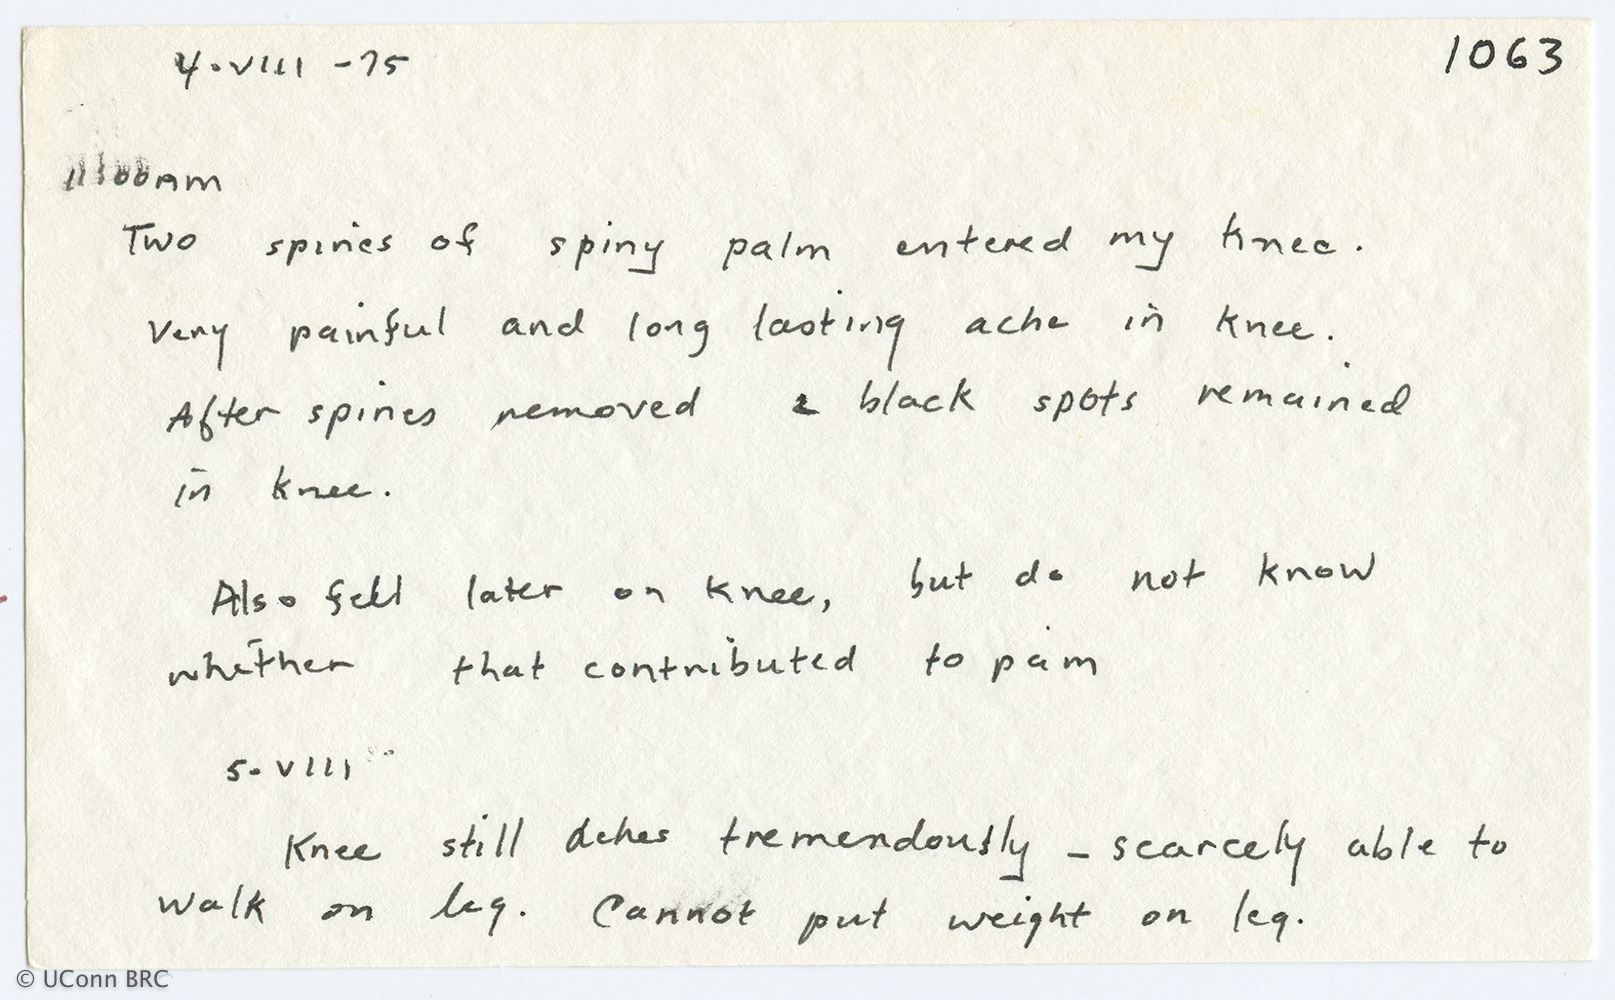 4.VIII -75
1063
11:00AM
Two spines of spiny palm entered my knee.
Very painful and long lasting ache in knee.
After spines removed 2 black spots remained
in knee.
Also fell later on knee, but do not know
whether that contributed to pain
5.VIII
Knee still aches tremendously - scarcely able to
walk on leg. Cannot put weight on leg.
© UConn BRC